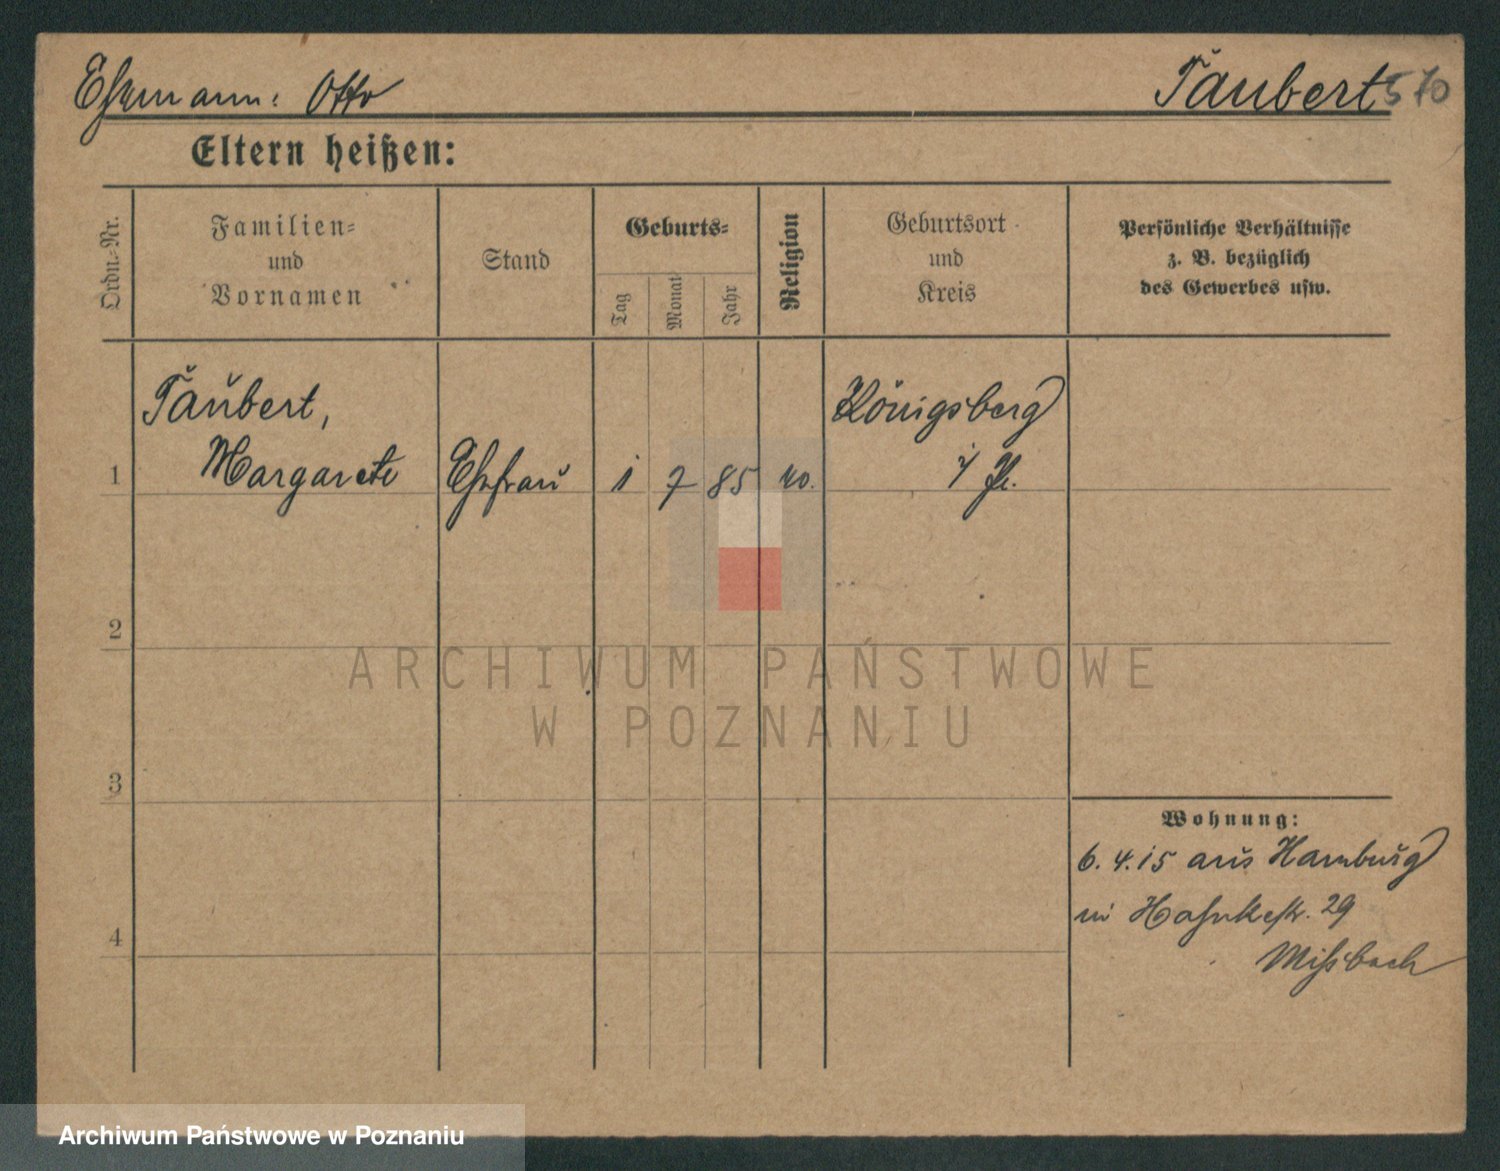 Ehemann: Otto
Taubert 570
Eltern heißen:
Ordn.-Nr.
Familien-
und
Vornamen
Stand
Geburts-
Tag
Monat
Jahr
Religion
Geburtsort
und
Kreis
Persönliche Verhältnisse
z. B. bezüglich
des Gewerbes usw.
Taubert,
Margarete
Ehefrau
1
7
85
Königsberg
i/ Pr.
1
2
3
4
Wohnung:
6. 4. 15 aus Hamburg
in 29
ARCHIWUM PAŃSTWOWE
W POZNANIU
Archiwum Państwowe w Poznaniu